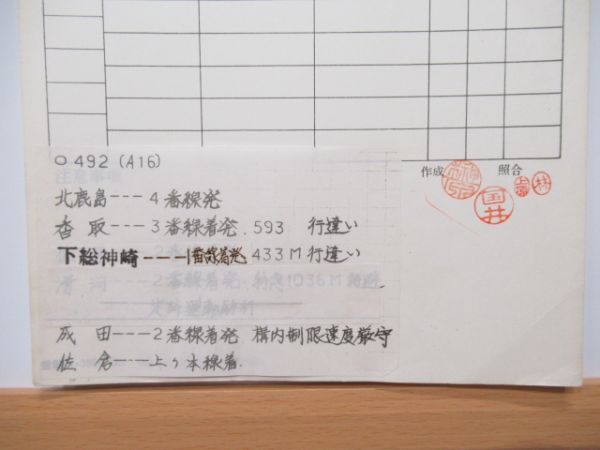 作成 照合
林
国井
○492(A16)
注意事項
北鹿島---4番線発
香取---3番線着発. 593 行違い
下総神崎---1番線着発 433M行違い
滑河---2番線着発. 特急1036M待避
定時運転励行
成田---2番線着発 構内制限速度厳守
佐倉---上り本線着.